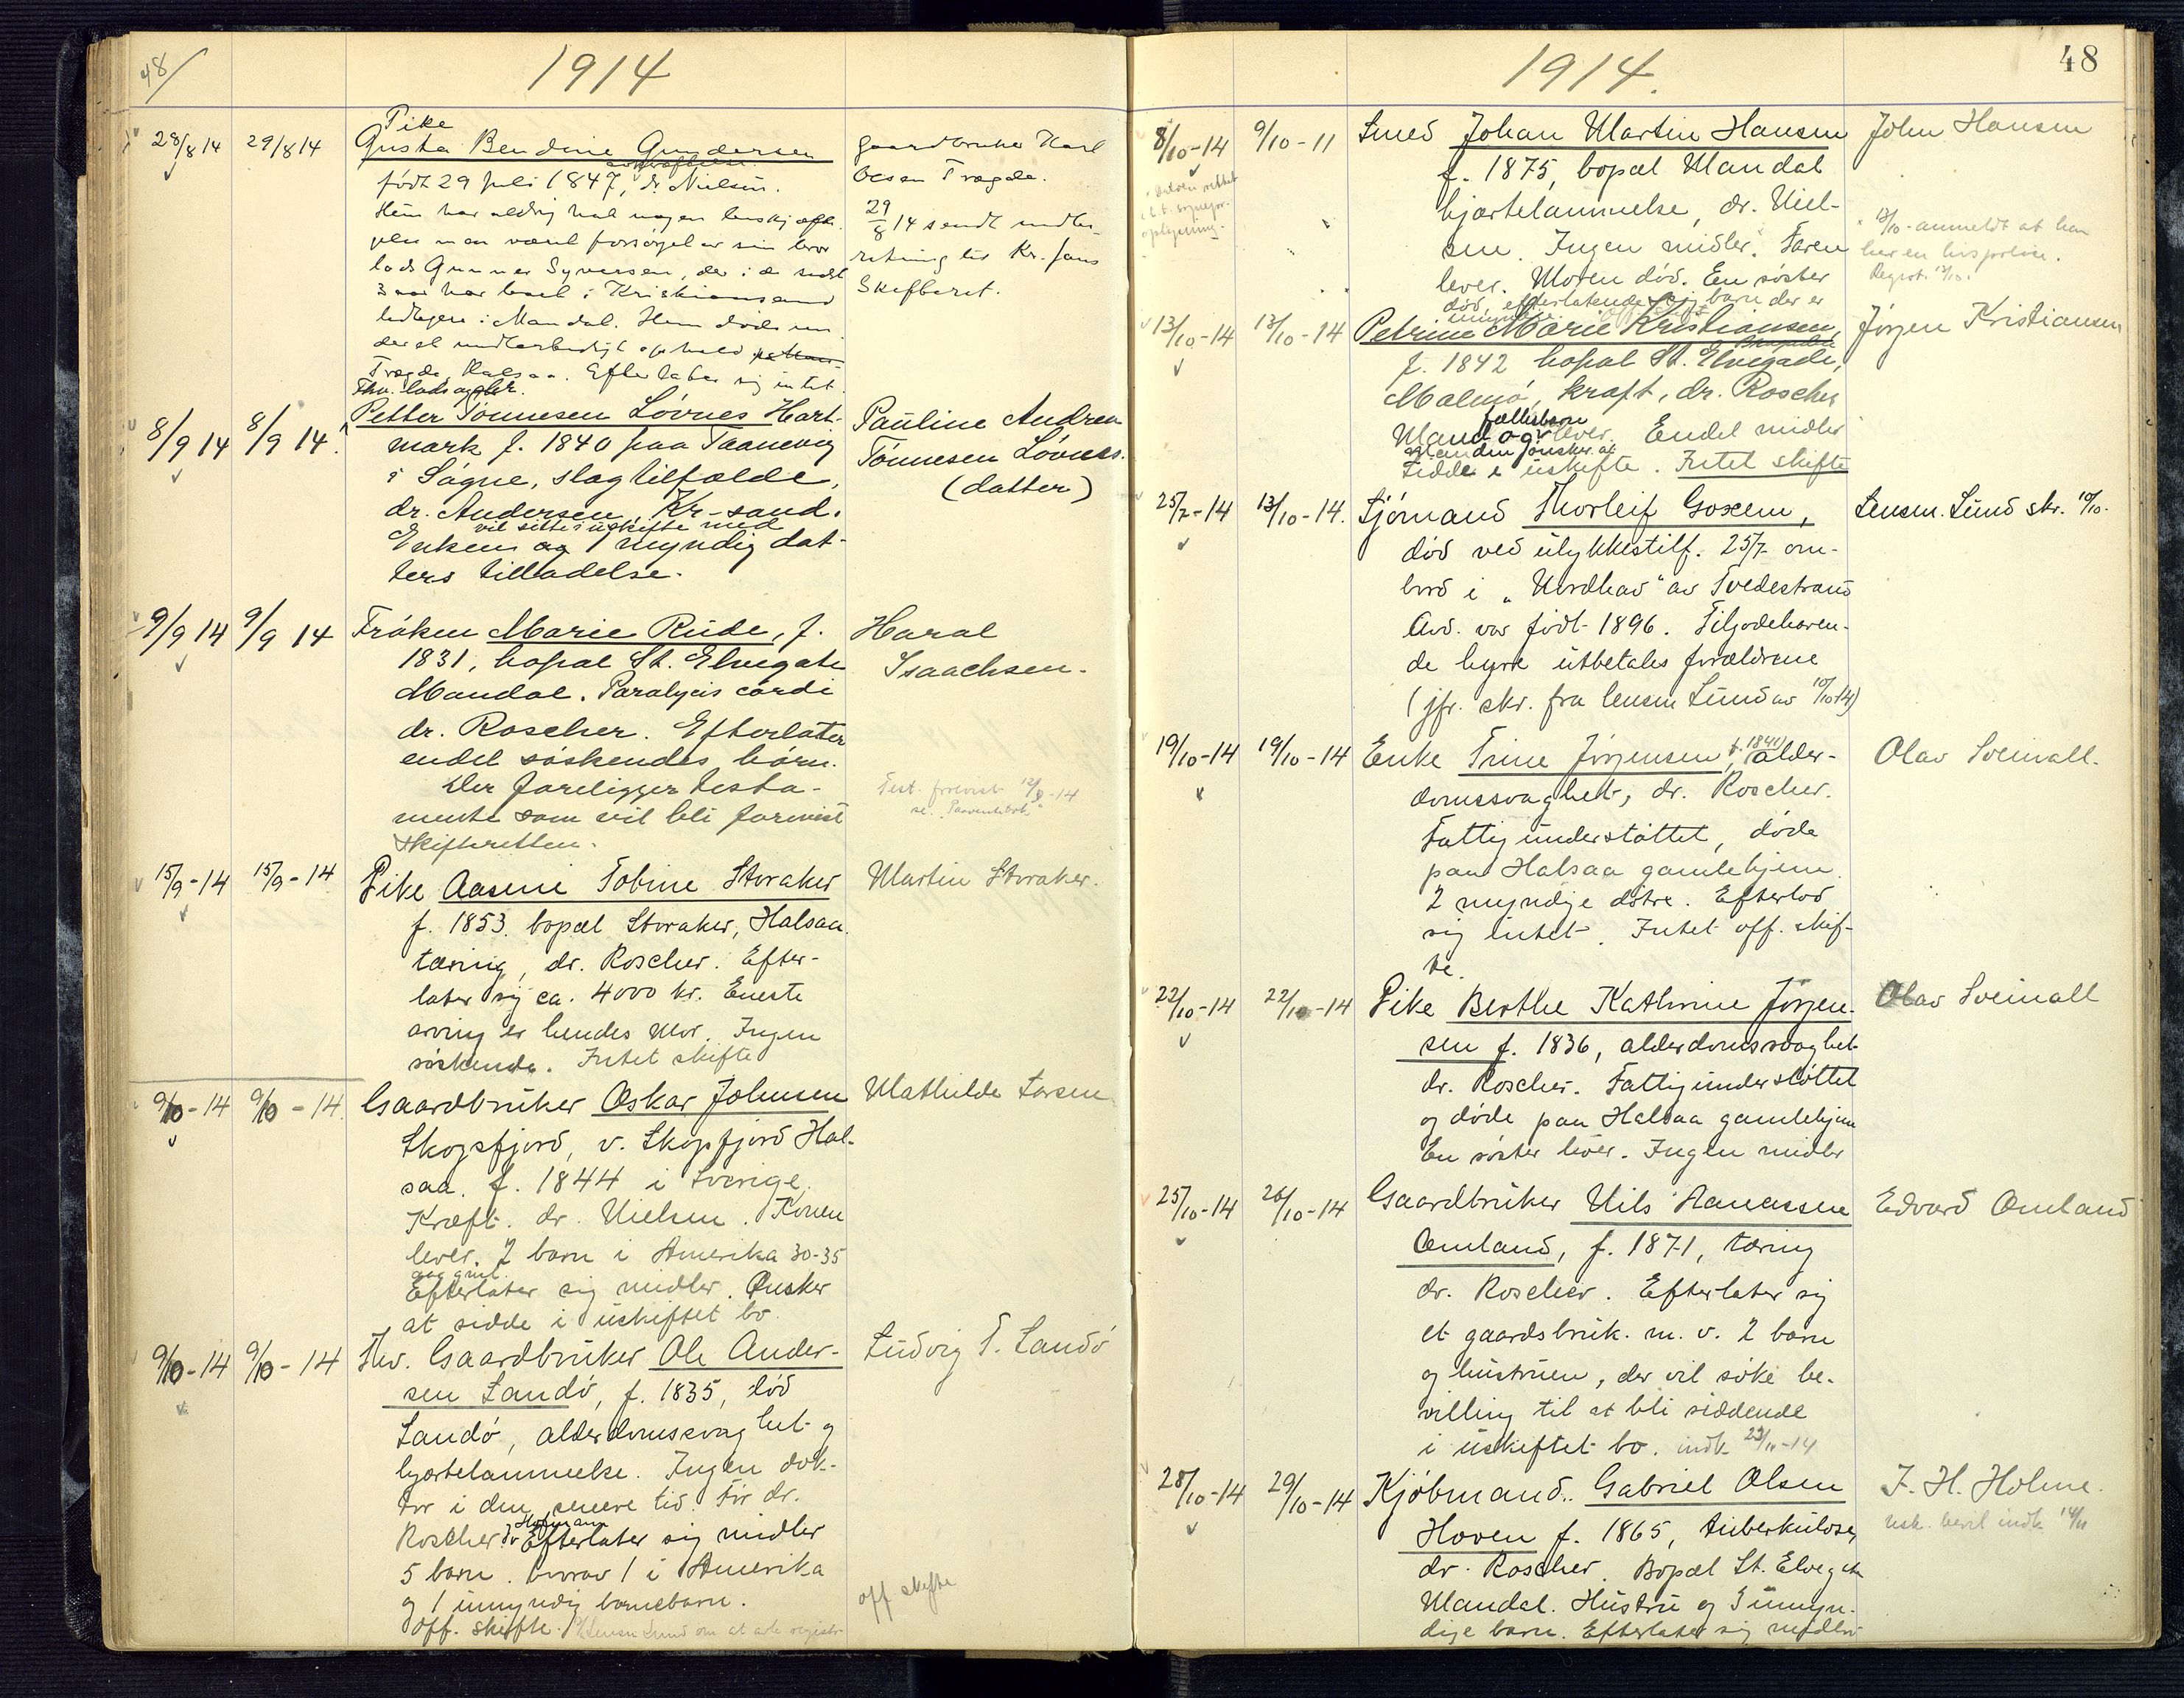 48/
1914
28/8 14 29/8 14
Pike
Gusta Bendine Gundersen
født 29 juli 1847, dr. Nielsen.
Hun har aldrig hat nogen
lods Gunner Syversen, der i de sidste
3 aar har boet i Kristianssand
tidligere i Mandal. Hun døde
Trægde, Halsaa. Efterlater sig intet.
gaardbruker Karl
Olsen Trægde.
29/8 14 sendt under-
retning til Kr. sans
Skifteret.
8/9 14 8/9 14.
Fhv. lodsoppler.
Petter Tønnesen Løvnes Hart-
mark f. 1840 paa Taanevig
i Søgne, slagtilfælde,
dr. Andersen, Kr-sand.
vil sitte i uskifte med
Enken og 1 myndig dat-
ters tilladelse.
Pauline Andrea
Tønnesen Løvnes.
(datter)
9/9 14 9/9 14
Frøken Marie Rude, f.
1831, bopæl St. Elvegate
Mandal. Paralysis cordi
dr. Roscher. Efterlater
endel søskendes børn.
Der foreligger testa-
mente som vil bli forevist
skifteretten.
Haral
Isaachsen.
Test. forevist 12/9-14
15/9-14 15/9-14
Pike Aasene Tobine Storaker
f. 1853. bopæl Storaker, Halsaa.
tæring, dr. Roscher. Efter-
later sig ca. 4000 kr. Eneste
arving er hendes mor. Ingen
søskende. Intet skifte
Martin Storaker.
9/10-14 9/10-14.
Gaardbruker Oskar Johnsen
Skogsfjord, v. Skogsfjord Hal-
saa. f. 1844 i Sverige.
Kræft. dr. Nielsen. Konen
lever. 2 barn i Amerika 30-35
aar gml.
Efterlater sig midler. Ønsker
at sidde i uskiftet bo.
Mathilde Larsen
9/10-14 9/10-14
Fhv. Gaardbruker Ole Ander-
sen Landø, f. 1835, død
Landø, alderdomssvaghet og
hjertelammelse. Ingen dok-
tor i den senere tid. Før dr.
Hofmann
Roscher dr Efterlater sig midler
5 barn. hvorav 1 i Amerika
og 1 umyndig barnebarn.
Off. skifte.
Ludvig T. Landø
off skifte
48
1914.
8/10-14 9/10-11
Smed Johan Martin Hansen
f. 1875, bopæl Mandal
hjærtelammelse, dr. Niel-
sen. Ingen midler. Faren
lever. Moren død. En søster
død, efterlatende sig barn der er
umyndige
John Hansen
13/10-anmeldt at han
har en livspolise.
Regist. 13/10.
13/10-14 13/10-14
Petrine Marie Kristiansen,
f. 1842 bopæl St. Elvegade,
Malmø, kræft, dr. Roscher
fællesbarn
Mand og lever. Endel midler
Manden ønsker at
sidde i uskifte. Intet skifte
Jørgen Kristiansen
25/7-14 13/10-14.
Sjømand Thorleif Goxem,
død ved ulykkestilf. 25/7 om-
bord i "Nordhav" av Tvedestrand
Avd. var født 1896. Tilgodehaven-
de hyre utbetales forældrene
(jfr. skr. fra lensm Lund av 10/10 14)
Lensm. Lund skr. 10/10.
19/10-14 19/10-14
Enke Trine Jørgensen, f. 1841, alder-
domssvaghet, dr. Roscher.
Fattigunderstøttet, døde
paa Halsaa gamlehjem.
2 myndige døtre. Efterlod
sig intet. Intet off. skif-
te.
Olav Sveinall.
22/10-14 22/10-14
Pike Berthe Kathrine Jørgen-
sen f. 1836, alderdomssvaghet
dr. Roscher. Fattigunderstøttet
og døde paa Halsaa gamlehjem
En søster lever. Ingen midler
Olav Sveinall
25/10-14 26/10-14
Gaardbruker Nils Aanenssen
Omland, f. 1871, tæring
dr. Roscher. Efterlater sig
et gaardsbruk. m. v. 2 barn
og hustruen, der vil søke be-
villing til at bli siddende
i uskiftet bo. indk 23/11-14
Edvard Omland
28/10-14 29/10-14
Kjøbmand. Gabriel Olsen
Hoven f. 1865, tuberkulose,
dr. Roscher. Bopæl St. Elvegate
Mandal. Hustru og 3 umyn-
dige barn. Efterlater sig midler
F. H. Holme.
usk. bevil indk 14/11